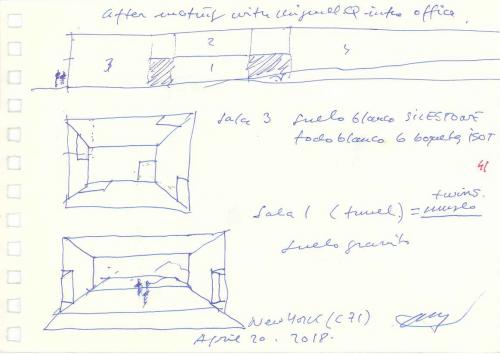 After meeting with Miguel Q in the office.
2
3
1
4
Sala 3 suelo blanco SILESTONE
todo blanco 6
Sala 1 (tunel) =
twins.
suelo granito
New York (C71)
April 20. 2018.